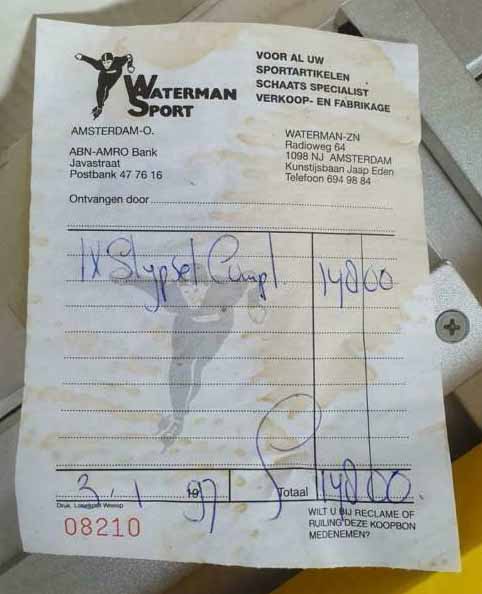 WATERMAN
SPORT
VOOR AL UW
SPORTARTIKELEN
SCHAATS SPECIALIST
VERKOOP- EN FABRIKAGE
AMSTERDAM-O.
ABN-AMRO Bank
Javastraat
Postbank 47 76 16
WATERMAN-ZN
Radioweg 64
1098 NJ AMSTERDAM
Kunstijsbaan Jaap Eden
Telefoon 694 98 84
Ontvangen door
1x Slypset Compl. 148 00
3-1 1997 Totaal 148 00.
Druk. Weesp
08210
WILT U BIJ RECLAME OF
RUILING DEZE KOOPBON
MEDENEMEN?